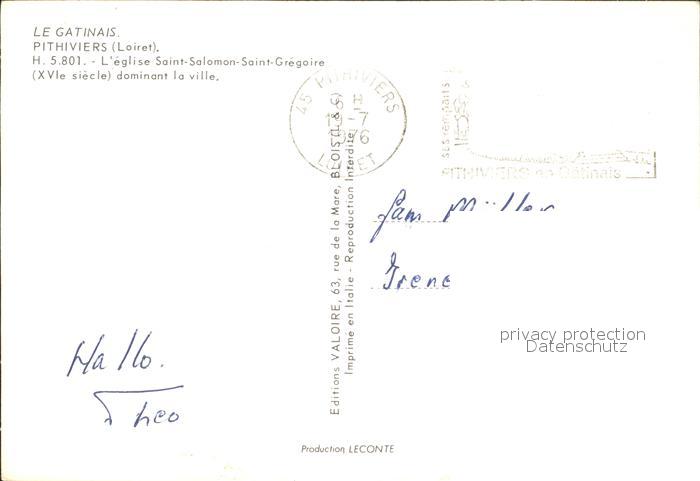 LE GATINAIS.
PITHIVIERS (Loiret).
H. 5.801. - L'église Saint-Salomon-Saint-Grégoire
(XVIe siècle) dominant la ville.
45 PITHIVIERS
-7
1976
LOIRET
SES remparts
PITHIVIERS en Gâtinais
Editions VALOIRE, 63, rue de la Mare, BLOIS (L & C)
Imprimé en Italie - Reproduction Interdite
Fam Müller
Irene
privacy protection
Datenschutz
Hallo.
Theo
Production LECONTE